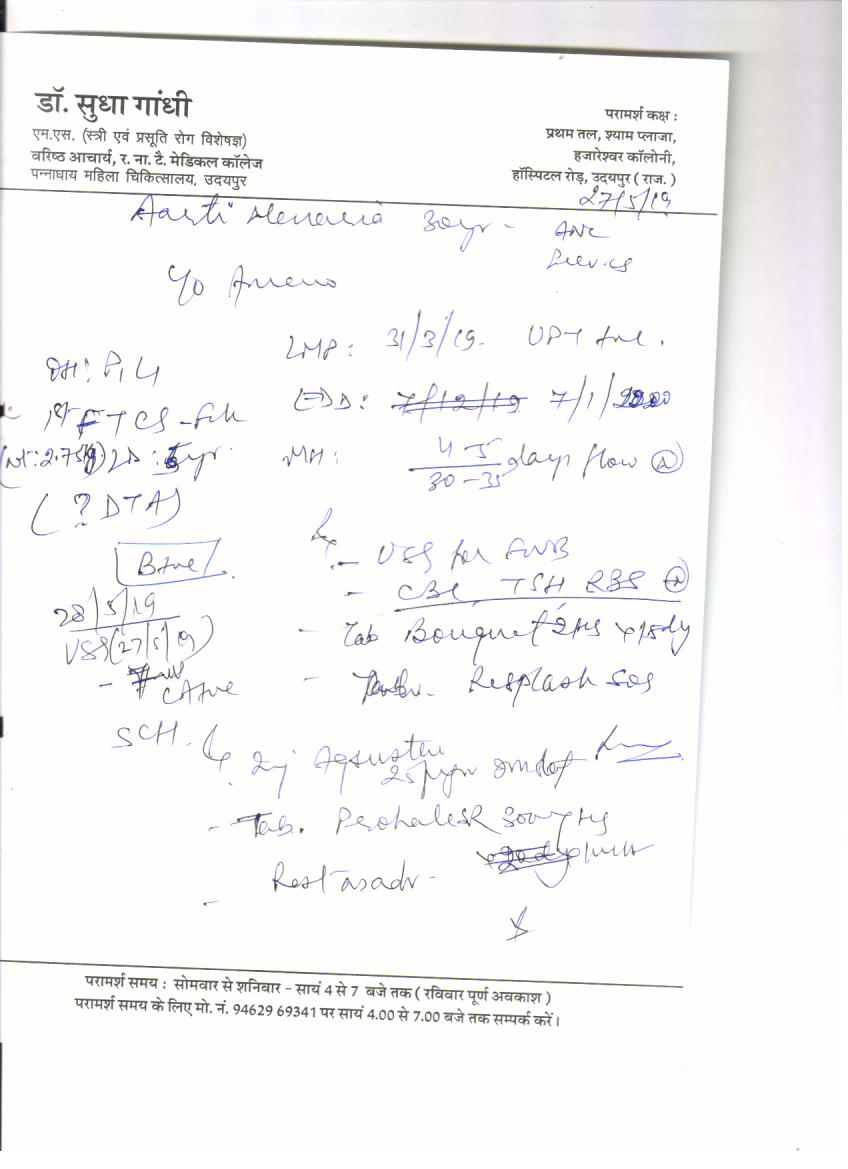 डॉ. सुधा गांधी
एम.एस. (स्त्री एवं प्रसूति रोग विशेषज्ञ)
वरिष्ठ आचार्य, र. ना. टै. मेडिकल कॉलेज
पन्नाधाय महिला चिकित्सालय, उदयपुर
परामर्श कक्ष :
प्रथम तल, श्याम प्लाजा,
हजारेश्वर कॉलोनी,
हॉस्पिटल रोड़, उदयपुर ( राज. )
27/5/19
Aarti Menaria 30yr - ANC
LMP: 31/3/19. UPT +ve.
EDD: 7/12/19 7/1/2020
1st FTCS - Fch
(wt: 2.75kg) LD: 5yr.
MH: 4-5/30-35 days flow (N)
(? DTA)
B+ve
- USG for FWB
- CBC, TSH RBS
28/5/19
USG (27/5/19)
- Tab Bouquet 2HS x 15dy
CA+ve
- Resplash SOS
SCH.
- Tab. 300mg HS
- Rest as adv -
परामर्श समय : सोमवार से शनिवार - सायं 4 से 7 बजे तक ( रविवार पूर्ण अवकाश )
परामर्श समय के लिए मो. नं. 94629 69341 पर सायं 4.00 से 7.00 बजे तक सम्पर्क करें।